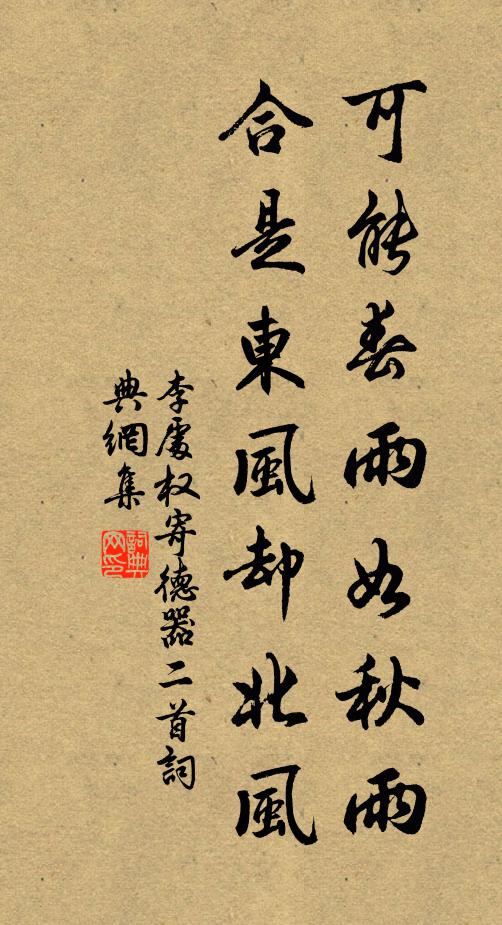 可能春雨如秋雨
合是東風却北風
李處权寄德器二首詞
典網集
詞典
网印